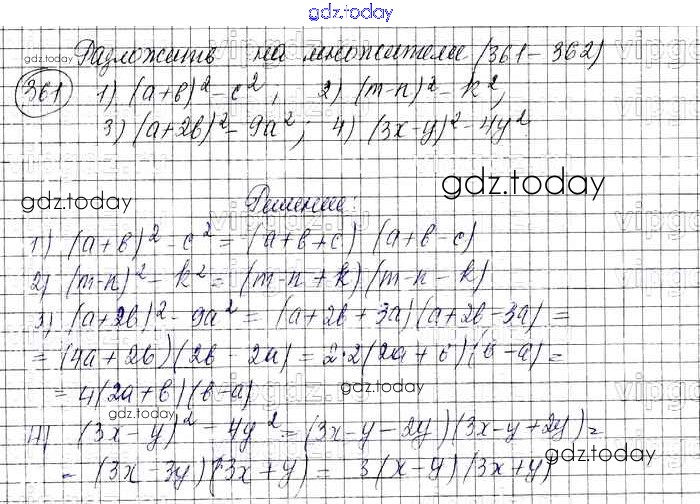 gdz.today
Разложить на множители (361-362)
361 1) (a+b)² - c², 2) (m-n)² - k²,
3) (a+2b)² - 9a²; 4) (3x-y)² - 4y²
gdz.today
gdz.today
Решение:
1) (a+b)² - c² = (a+b+c) (a+b-c)
2) (m-n)² - k² = (m-n+k)(m-n-k)
3) (a+2b)² - 9a² = (a+2b+3a)(a+2b-3a) =
= (4a+2b)(2b-2a) = 2·2(2a+b)(b-a) =
= 4(2a+b)(b-a)
gdz.today
gdz.today
4) (3x-y)² - 4y² = (3x-y-2y)(3x-y+2y) =
= (3x-3y)(3x+y) = 3(x-y)(3x+y)
gdz.today